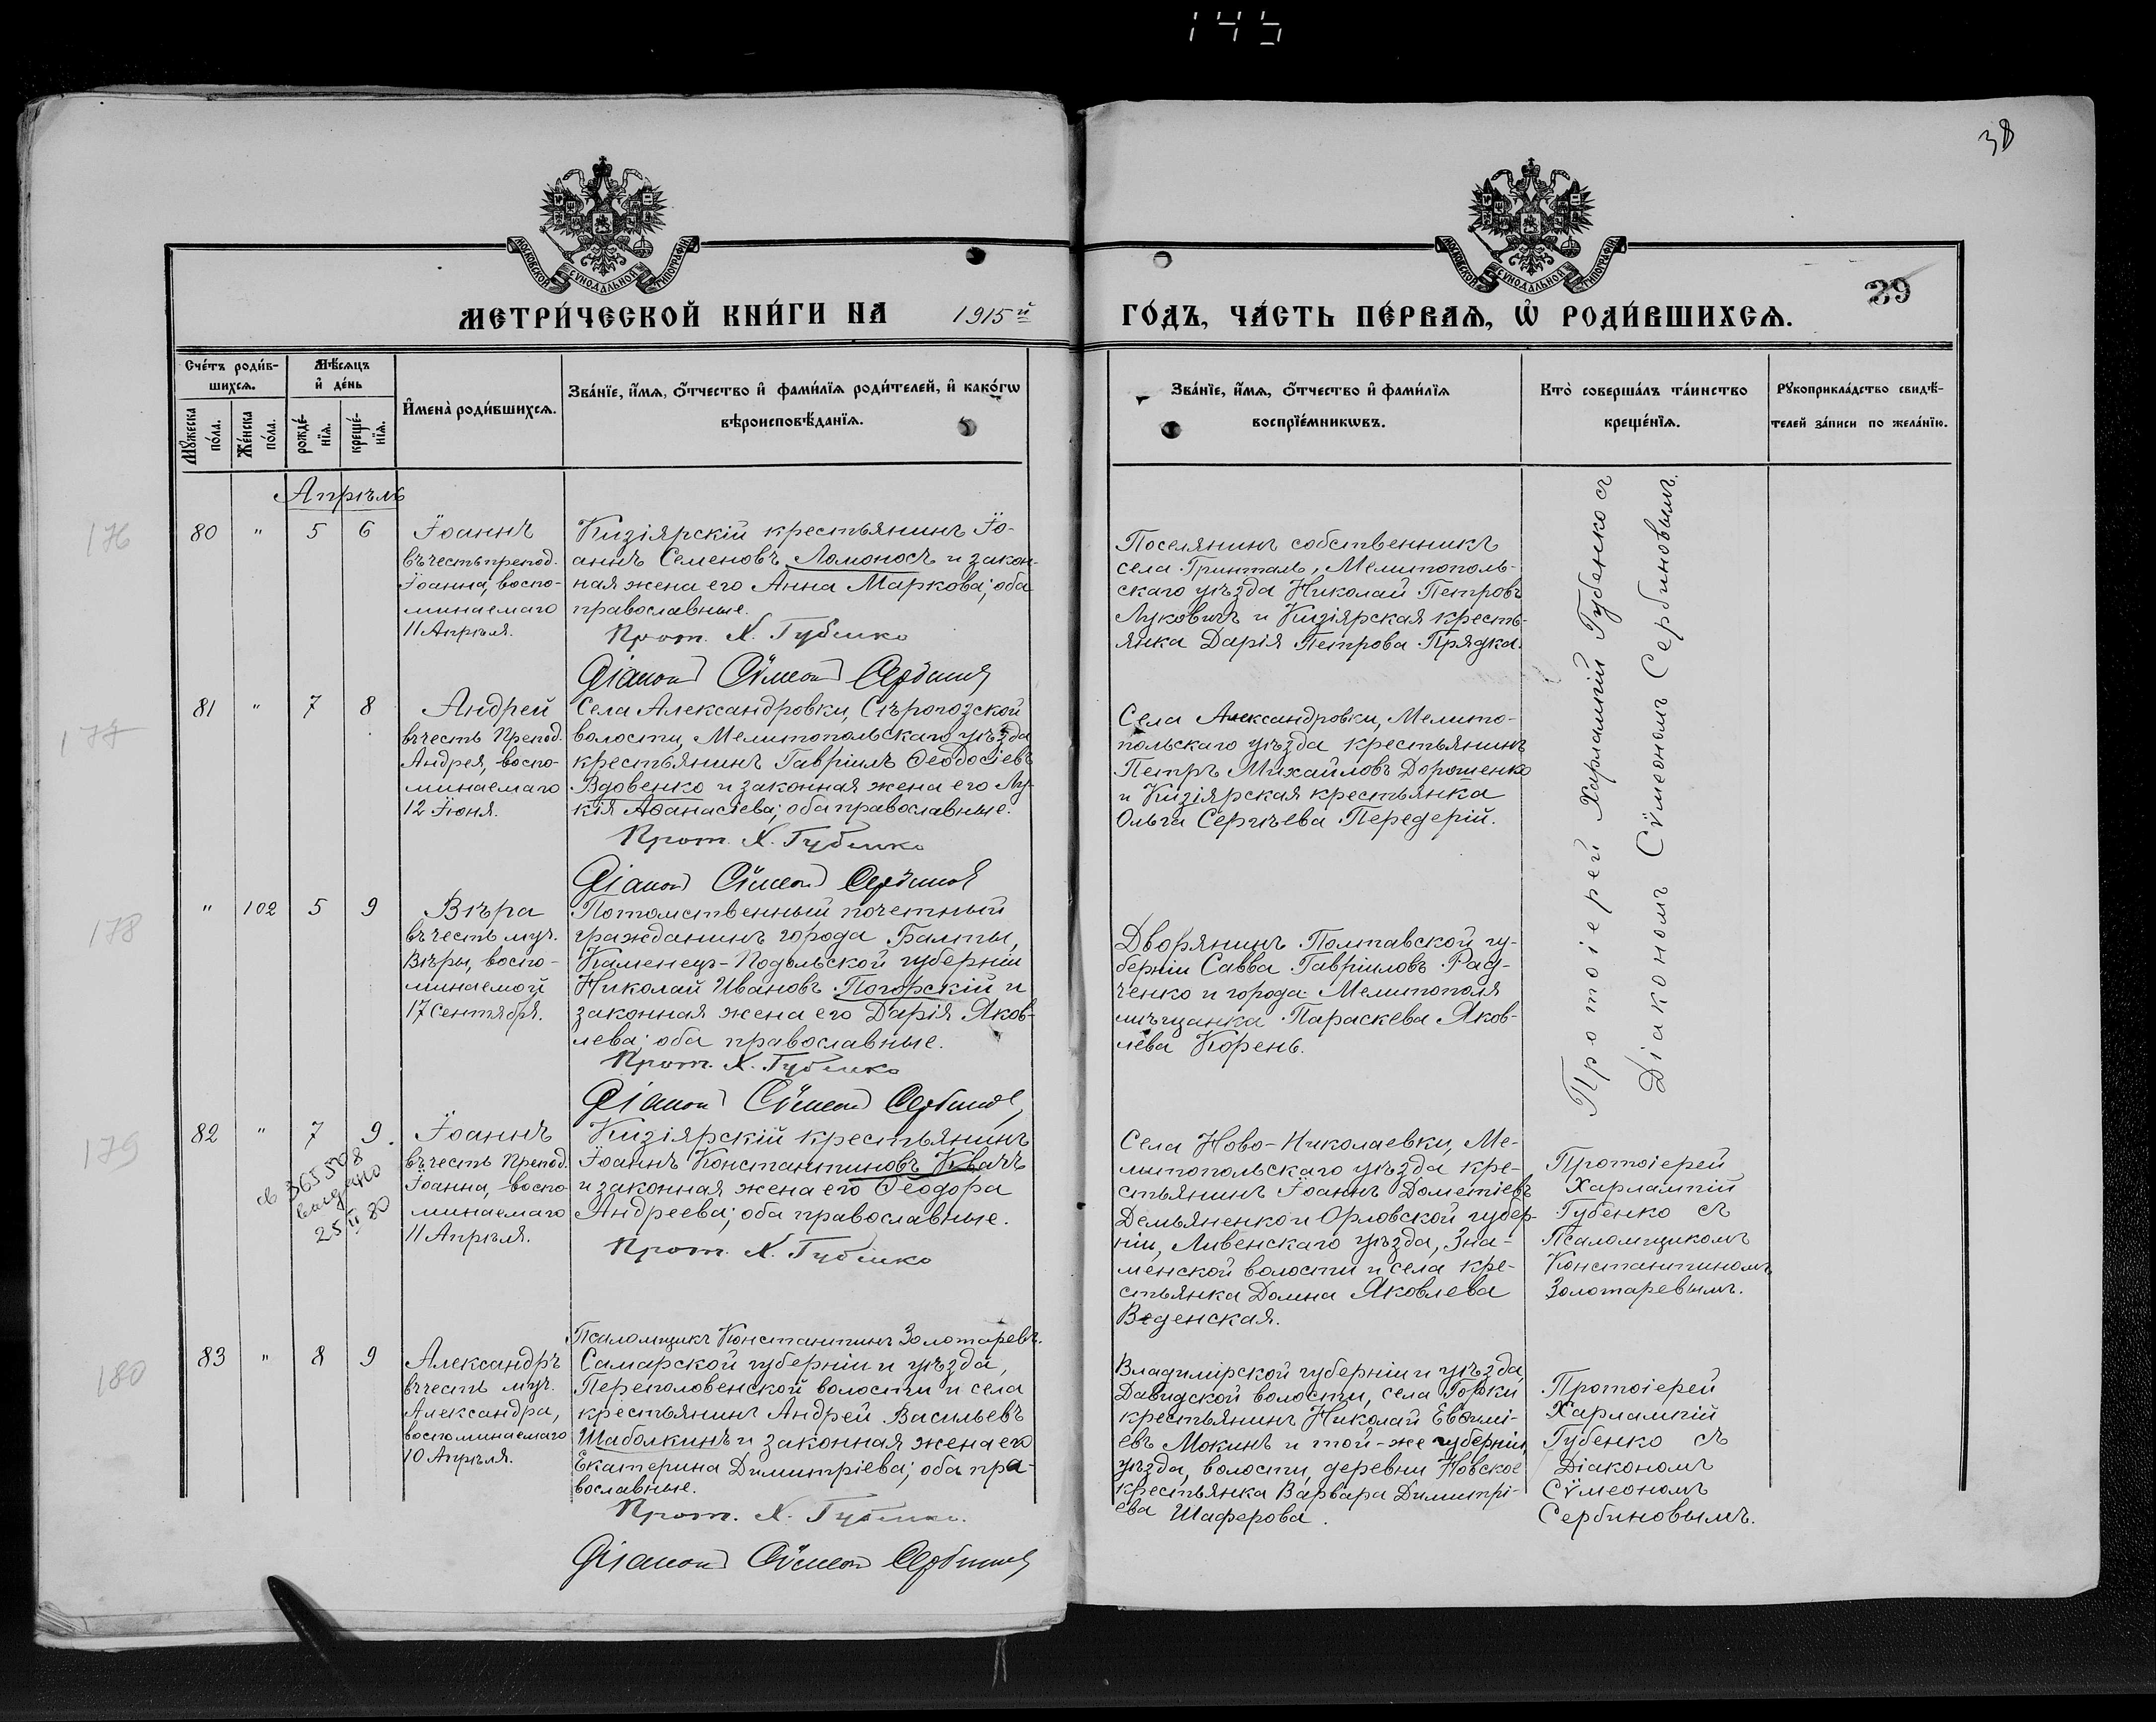 145
38
МОСКОВСКОЙ СѴНОДАЛЬНОЙ ТИПОГРАФІИ
МОСКОВСКОЙ СѴНОДАЛЬНОЙ ТИПОГРАФІИ
39
МЕТРИ́ЧЕСКОЙ КНИ́ГИ НА 1915й ГО́ДЪ, ЧА́СТЬ ПЕ́РВАѦ, Ѡ҆ РОДИ́ВШИХСѦ.
Сче́тъ роди́в-
шихсѧ.
Мѣ́сѧцъ
и҆ де́нь
Мꙋ́жеска
по́ла.
Же́нска
по́ла.
рожде́-
нїѧ.
креще́-
нїѧ.
И҆мена̀ роди́вшихсѧ.
Зва́нїе, и҆́мѧ, ѻ҆́тчество и҆ фами́лїѧ роди́телей, и҆ како́гѡ
вѣроисповѣ́данїѧ.
Зва́нїе, и҆́мѧ, ѻ҆́тчество и҆ фами́лїѧ
воспрїе́мникѡвъ.
Кто̀ соверша́лъ та́инство
креще́нїѧ.
Рꙋкоприкла́дство свидѣ́-
телей за́писи по жела́нїю.
Апрѣль
176
80 " 5 6
Іоаннъ
въ честь препод.
Іоанна, воспо-
минаемаго
11 Апрѣля.
Кизіярскій крестьянинъ Іо-
аннъ Семеновъ Ломоносъ и закон-
ная жена его Анна Маркова; оба
православные.
Прот. Х. Губенко
Діаконъ Сѵмеонъ Сербиновъ
Поселянинъ собственникъ
села Гринталь, Мелитополь-
скаго уѣзда Николай Петровъ
Луковичъ и Кизіярская кресть-
янка Дарія Петрова Прядка.
Протоіерей Харлампій Губенко съ
Діакономъ Сѵмеономъ Сербиновымъ.
177
81 " 7 8
Андрей
въ честь Препод.
Андрея, воспо-
минаемаго
12 Іюня.
Села Александровки, Сѣрогозской
волости, Мелитопольскаго уѣзда
крестьянинъ Гавріилъ Ѳеодосіевъ
Вдовенко и законная жена его Лу-
кія Аѳанасіева; оба православные.
Прот. Х. Губенко
Діаконъ Сѵмеонъ Сербиновъ
Села Александровки, Мелито-
польскаго уѣзда крестьянинъ
Петръ Михайловъ Дорошенко
и Кизіярская крестьянка
Ольга Сергѣева Передерій.
178
" 102 5 9
Вѣра
въ честь муч.
Вѣры, воспо-
минаемой
17 Сентября.
Потомственный почетный
гражданинъ города Балты,
Каменец-Подольской губерніи
Николай Ивановъ Погорскій и
законная жена его Дарія Яков-
лева; оба православные.
Прот. Х. Губенко
Діаконъ Сѵмеонъ Сербиновъ
Дворянинъ Полтавской гу-
берніи Савва Гавріиловъ Рад-
ченко и города Мелитополя
мѣщанка Параскева Яков-
лева Корень.
179
82 " 7 9.
365508
выдано
25 II 80
Іоаннъ
въ честь Препод.
Іоанна, воспо-
минаемаго
11 Апрѣля.
Кизіярскій крестьянинъ
Іоаннъ Константиновъ Квачъ
и законная жена его Ѳеодора
Андреева; оба православные.
Прот. Х. Губенко
Псаломщикъ Константинъ Золотаревъ.
Села Ново-Николаевки, Ме-
литопольскаго уѣзда кре-
стьянинъ Іоаннъ Дометіевъ
Демьяненко и Орловской губер-
ніи, Ливенскаго уѣзда, Зна-
менской волости и села кре-
стьянка Домна Яковлева
Веденская.
Протоіерей
Харлампій
Губенко съ
Псаломщикомъ
Константиномъ
Золотаревымъ.
180
83 " 8 9
Александръ
въ честь муч.
Александра,
воспоминаемаго
10 Апрѣля.
Самарской губерніи и уѣзда,
Переполовенской волости и села
крестьянинъ Андрей Васильевъ
Шаболкинъ и законная жена его
Екатерина Димитріева; оба пра-
вославные.
Прот. Х. Губенко.
Діаконъ Сѵмеонъ Сербиновъ
Владимірской губерніи и уѣзда,
Давидской волости, села Горки
крестьянинъ Николай Евѳимі-
евъ Мокинъ и той-же губерніи,
уѣзда, волости, деревни Новское
крестьянка Варвара Димитрі-
ева Шаферова.
Протоіерей
Харлампій
Губенко съ
Діакономъ
Сѵмеономъ
Сербиновымъ.